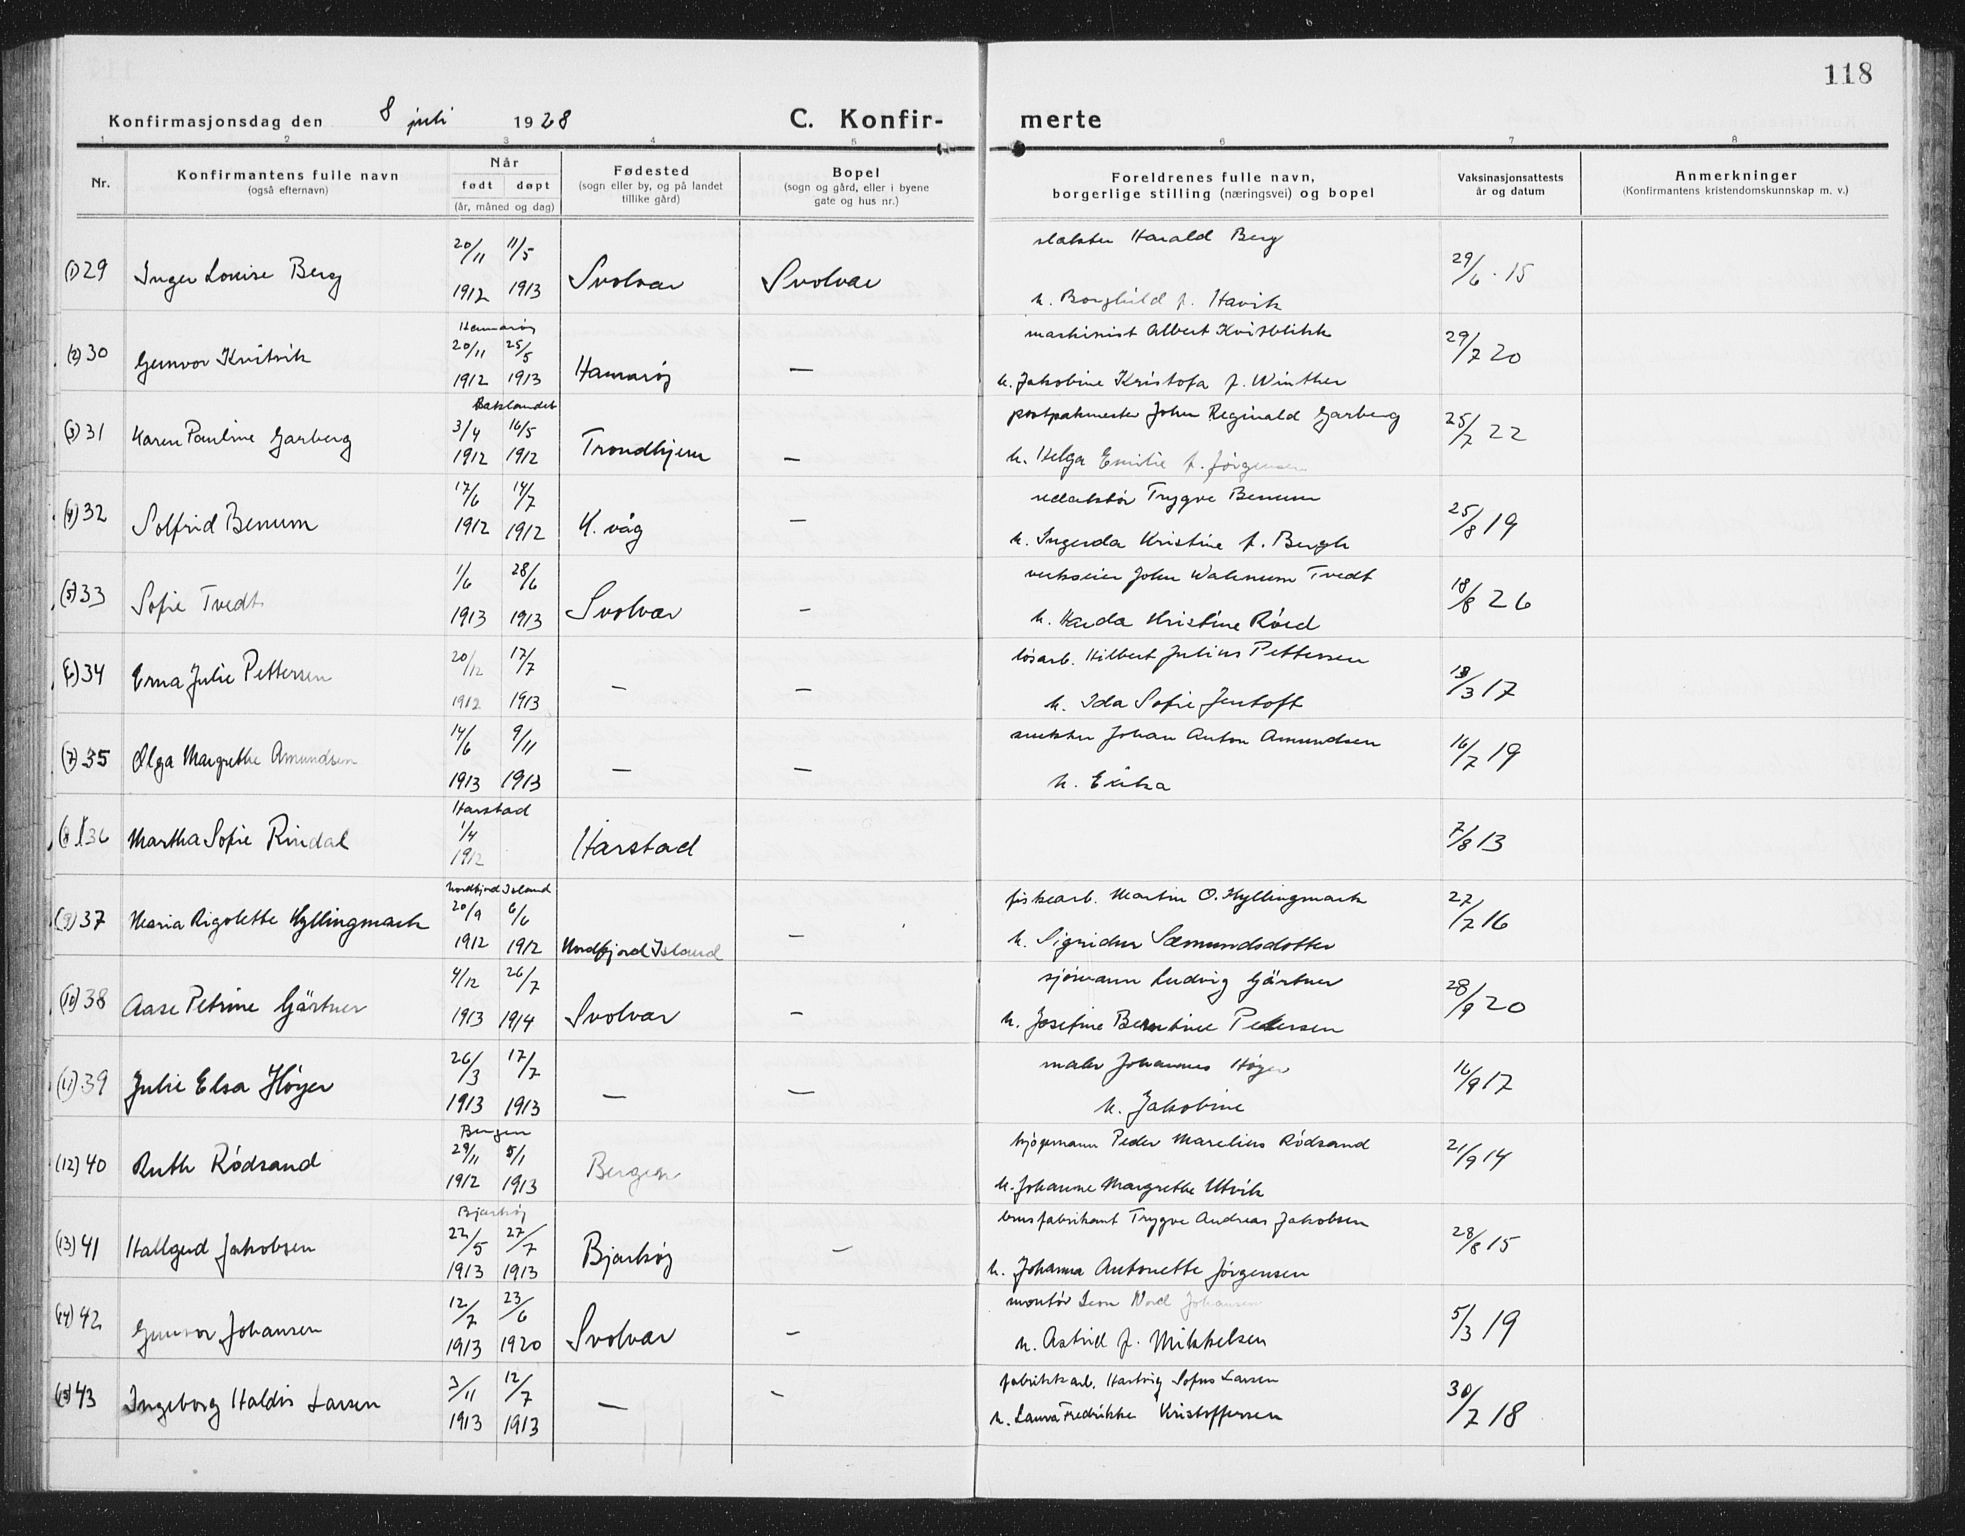 118
Konfirmasjonsdag den 8 juli 1928 C. Konfir- merte
1 2 3 4 5 6 7 8
Nr.
Konfirmantens fulle navn
(også efternavn)
Når
født døpt
(år, måned og dag)
Fødested
(sogn eller by, og på landet
tillike gård)
Bopel
(sogn og gård, eller i byene
gate og hus nr.)
Foreldrenes fulle navn,
borgerlige stilling (næringsvei) og bopel
Vaksinasjonsattests
år og datum
Anmerkninger
(Konfirmantens kristendomskunnskap m. v.)
20/11 11/5 slakter Harald Berg
(1) 29 Inger Louise Berg Svolvær Svolvær 29/6 . 15
1912 1913 h. Borghild f. Havik
Hamarøy maskinist Albert Kvitblikk
(2) 30 Gunvor Kvitvik 20/11 25/5 29/7 20
1912 1913 Hamarøy — h. Jakobine Kristofa f. Winther
Baklandet postpakmester John Reginald Garberg
(3) 31 Karen Pauline Garberg 3/4 16/5 25/7 22
1912 1912 Trondhjem — h. Helga Emilie f. Jørgensen
17/6 14/7 redaktør Trygve Benum
(4) 32 Solfrid Benum K. våg — 25/8 19
1912 1912 h. Ingerda Kristine f. Bergh
1/6 28/6 verkseier John Walnum Tvedt
(5) 33 Sofie Tvedt Svolvær — 18/8 26
1913 1913 h. Kristine Røed
20/12 17/7 løsarb. Hilbert Julius Pettersen
(6) 34 Erna Julie Pettersen — — 18/3 17
1912 1913 h. Ida Sofie Jentoft
14/6 9/11 snekker Johan Anton Amundsen
(7) 35 Olga Margrethe Amundsen — — 16/7 19
1913 1913 h. Erika
Harstad
(8) 36 Martha Sofie Rindal 1/4 Harstad 7/8 13
1912
Nordfjord Island fiskearb. Martin O. Hyllingmark
(9) 37 Maria Rigolette Hyllingmark 20/9 6/6 27/7 16
1912 1912 Nordfjord Island — h. Sigridur Sæmundsdotter
4/12 26/7 sjømann Ludvig Gärtner
(10) 38 Aase Petrine Gärtner 28/9 20
1913 1914 Svolvær — h. Josefine Berntine Petersen
26/3 17/7 maler Johannes Høyer
(11) 39 Julie Elsa Høyer 16/9 17
1913 1913 — — h. Jakobine
Bergen Peder Marelius Rødsand
(12) 40 Ruth Rødsand 29/11 5/1 Bergen 21/9 14
1912 1913 h. Johanne Margrethe Utvik
Bjarkøy brusfabrikant Trygve Andreas Jakobsen
(13) 41 Hallgerd Jakobsen 22/5 27/7 Bjarkøy — 28/8 15
1913 1913 h. Johanna Antonette Jørgensen
12/7 23/6 montør Nord Johansen
(14) 42 Gunvor Johansen Svolvær — 5/3 19
1913 1920 h. Astrid f. Mikkelsen
3/11 12/7 fabrikkarb. Hartvig Sofus Larsen
(15) 43 Ingeborg Haldis Larsen — — 30/7 18
1913 1913 h. Laura Fredrikke Kristoffersen